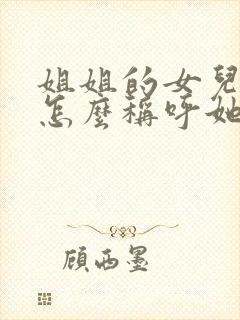 姐姐的女兒
怎麼稱呼她
顧西墨